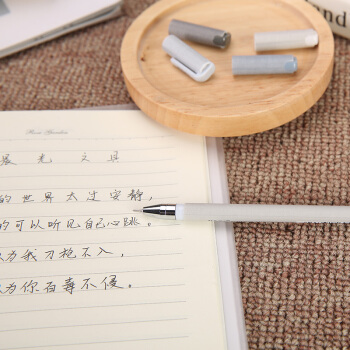 Rose Garden
晨光文具
的世界太过安静,
的可以听见自己心跳。
为我刀枪不入,
为你百毒不侵。